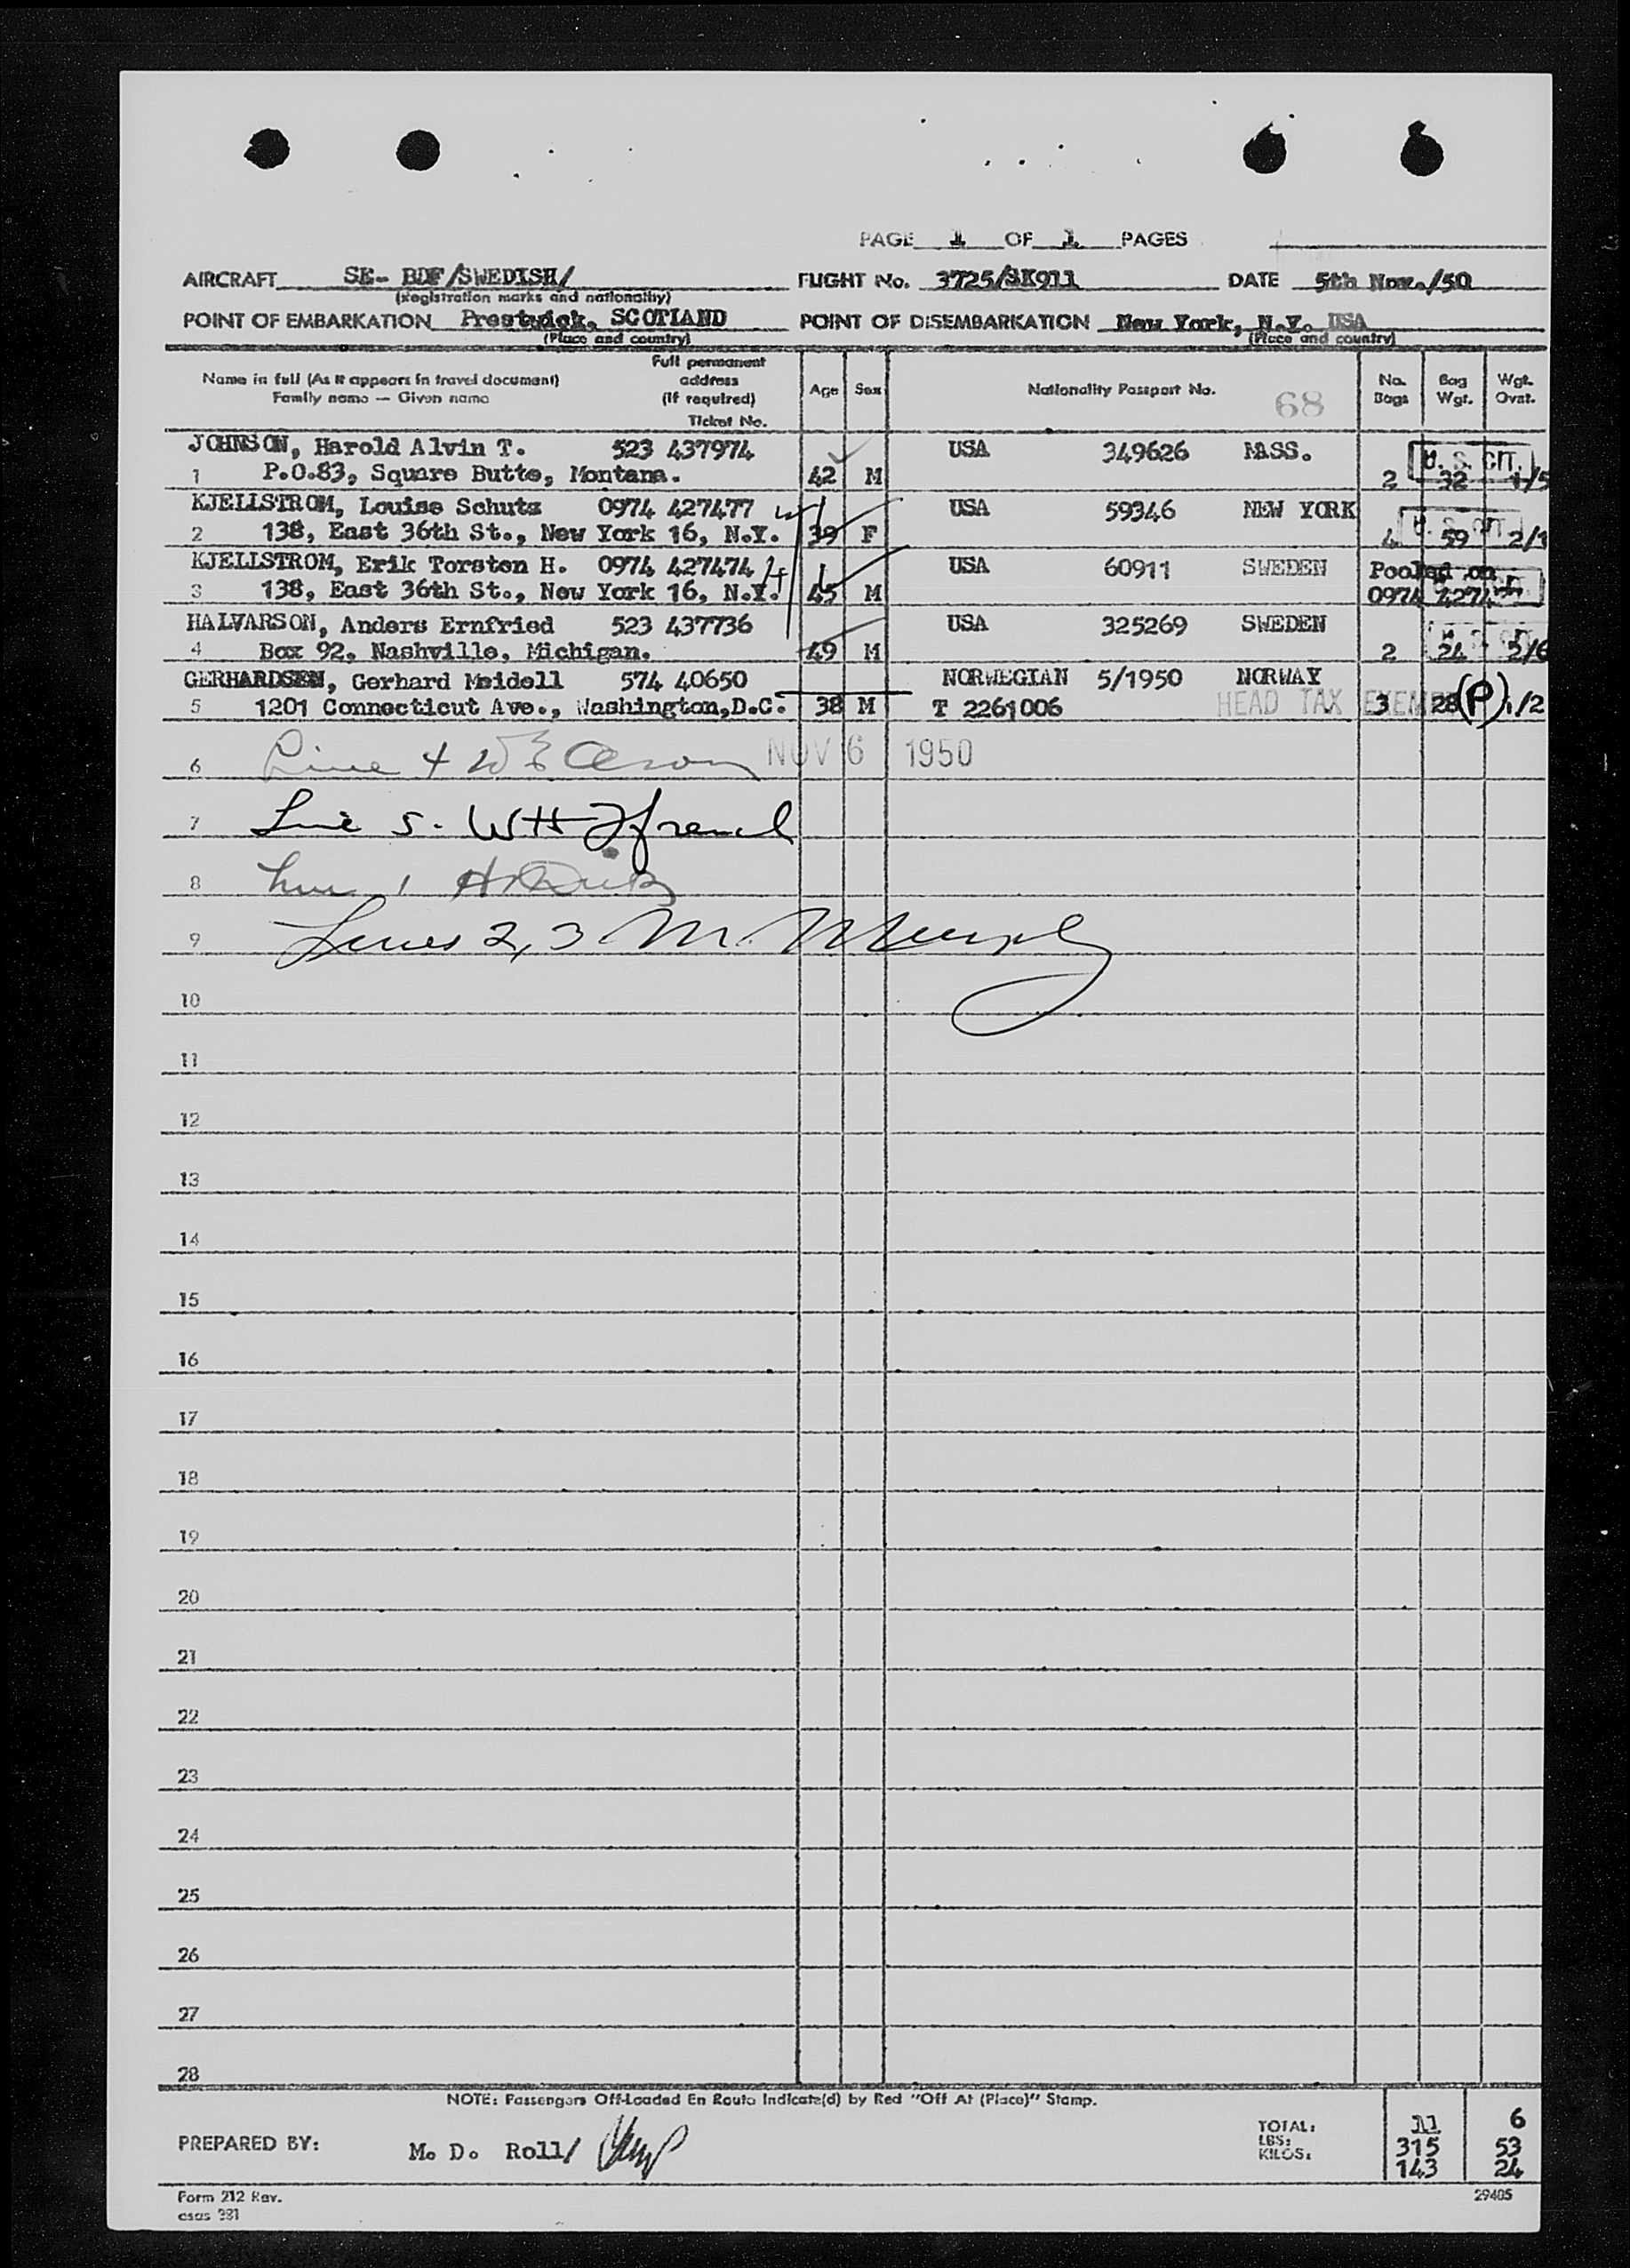 PAGE 1 OF 1 PAGES
AIRCRAFT SE- BDF/SWEDISH/ FLIGHT No. 3725/SK911 DATE 5th Nov./50
(Registration marks and nationality)
POINT OF EMBARKATION Prestwick, SCOTLAND POINT OF DISEMBARKATION New York, N.Y. USA
(Place and country) (Place and country)
Name in full (As it appears in travel document)
Family name — Given name
Full permanent
address
(if required)
Ticket No.
Age Sex Nationality Passport No. 68 No. Bags Bag Wgt. Wgt. Ovat.
JOHNSON, Harold Alvin T. 523 437974 USA 349626 MASS. U. S. CIT.
1 P.O.83, Square Butte, Montana. 42 M 2 32 1/5
KJELLSTROM, Louise Schutz 0974 427477 USA 59346 NEW YORK
2 138, East 36th St., New York 16, N.Y. 39 F 4 59 2/1
KJELLSTROM, Erik Torsten H. 0974 427474 USA 60911 SWEDEN Pooled on
3 138, East 36th St., New York 16, N.Y. 45 M 0974 427477
HALVARSON, Anders Ernfried 523 437736 USA 325269 SWEDEN
4 Box 92, Nashville, Michigan. 49 M 2 24 2/6
GERHARDSEN, Gerhard Meidell 574 40650 NORWEGIAN 5/1950 NORWAY
5 1201 Connecticut Ave., Washington,D.C. 38 M T 2261006 HEAD TAX EXEMPT 3 28 (P) 1/2
6 Line 4 NOV 6 1950
7 Line 5. WH
8 Line 1
9 Lines 2,3 M. Murphy
10
11
12
13
14
15
16
17
18
19
20
21
22
23
24
25
26
27
28
NOTE: Passengers Off-Loaded En Route Indicate(d) by Red "Off At (Place)" Stamp.
PREPARED BY: M. D. Roll/
TOTAL: 11 6
LBS: 315 53
KILOS: 143 24
Form 212 Rev. 29405
csas 981